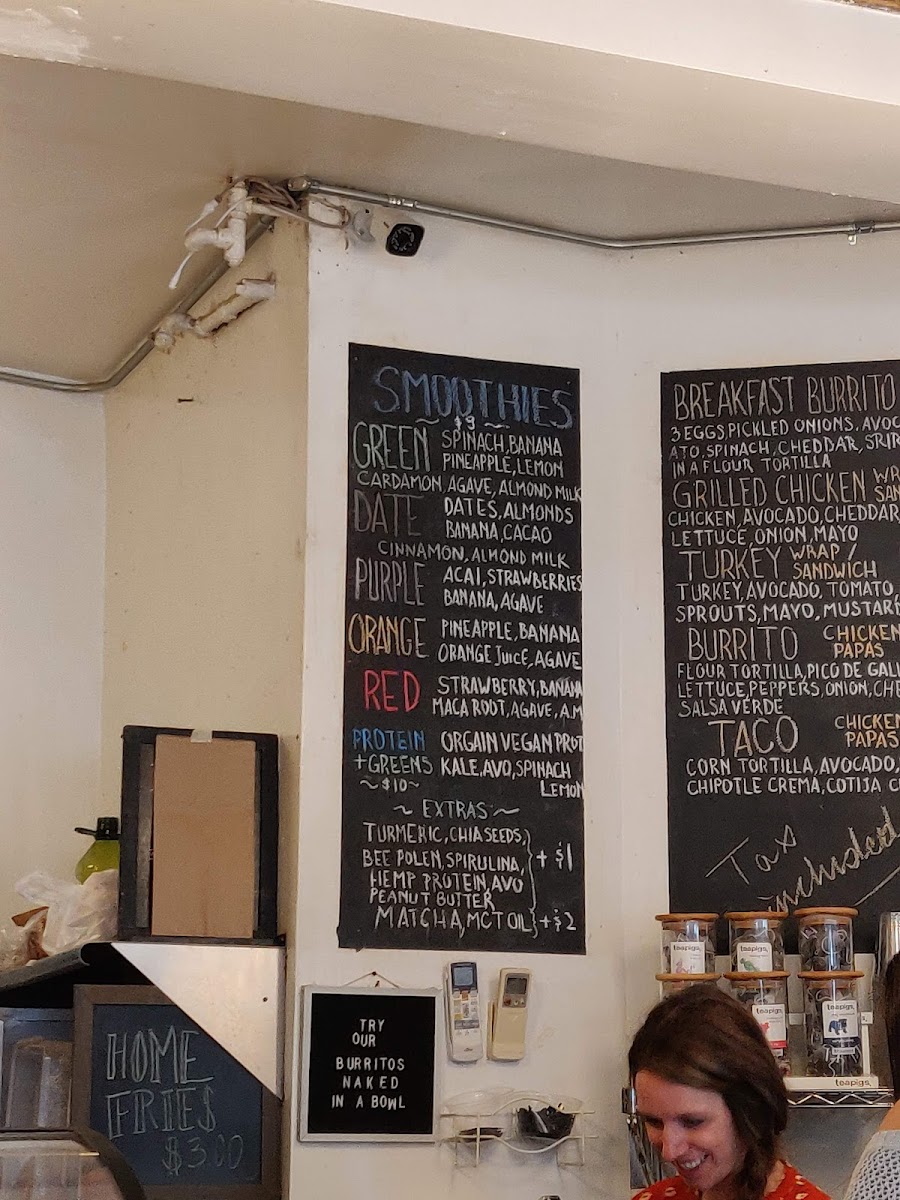 SMOOTHIES
~ $9 ~
GREEN SPINACH, BANANA
PINEAPPLE, LEMON
CARDAMON, AGAVE, ALMOND MILK
DATE DATES, ALMONDS
BANANA, CACAO
CINNAMON, ALMOND MILK
PURPLE ACAI, STRAWBERRIES
BANANA, AGAVE
ORANGE PINEAPPLE, BANANA
ORANGE JUICE, AGAVE
RED STRAWBERRY, BANANA
MACA ROOT, AGAVE, A.M
PROTEIN ORGAIN VEGAN PROT
+GREENS KALE, AVO, SPINACH
~$10~ LEMON
~ EXTRAS ~
TURMERIC, CHIA SEEDS,
BEE POLEN, SPIRULINA, + $1
HEMP PROTEIN, AVO
PEANUT BUTTER
MATCHA, MCT OIL + $2
BREAKFAST BURRITO
3 EGGS, PICKLED ONIONS, AVOC
ATO, SPINACH, CHEDDAR, SRIR
IN A FLOUR TORTILLA
GRILLED CHICKEN WR
SAN
CHICKEN, AVOCADO, CHEDDAR
LETTUCE, ONION, MAYO
TURKEY WRAP /
SANDWICH
TURKEY, AVOCADO, TOMATO,
SPROUTS, MAYO, MUSTAR
BURRITO CHICKEN
PAPAS
FLOUR TORTILLA, PICO DE GALL
LETTUCE, PEPPERS, ONION, CHE
SALSA VERDE
TACO CHICKEN
PAPAS
CORN TORTILLA, AVOCADO,
CHIPOTLE CREMA, COTIJA C
Tax
included
teapigs.
teapigs.
teapigs.
teapigs.
teapigs.
HOME
FRIES
$3.00
TRY
OUR
BURRITOS
NAKED
IN A BOWL